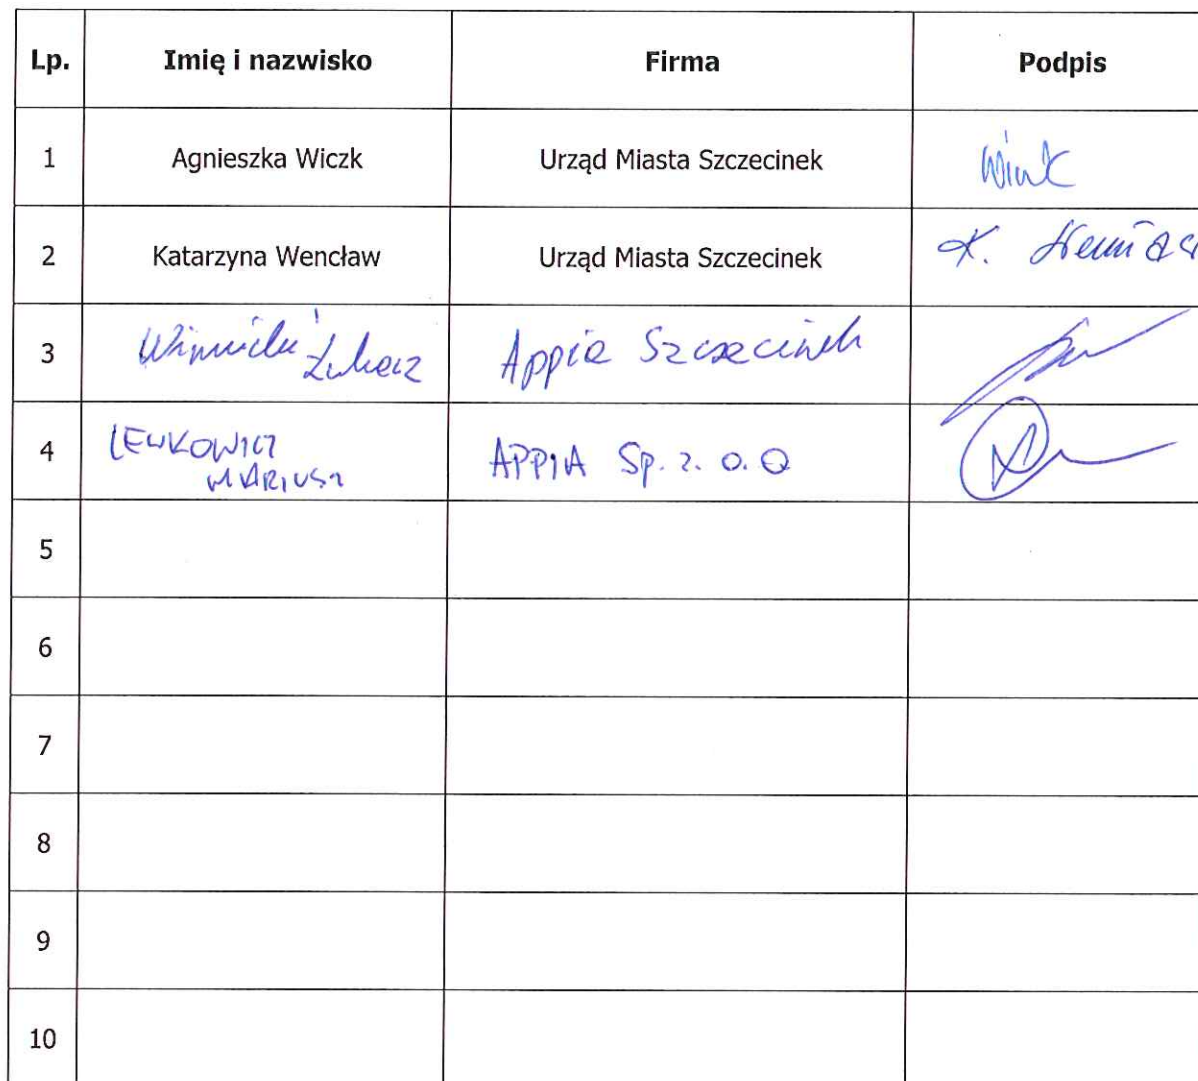 Lp. Imię i nazwisko Firma Podpis
1 Agnieszka Wiczk Urząd Miasta Szczecinek
2 Katarzyna Wencław Urząd Miasta Szczecinek K.
3 Łukasz Appia Szczecinek
4 LEWKOWICZ
MARIUSZ APPIA Sp. z. o. o
5
6
7
8
9
10